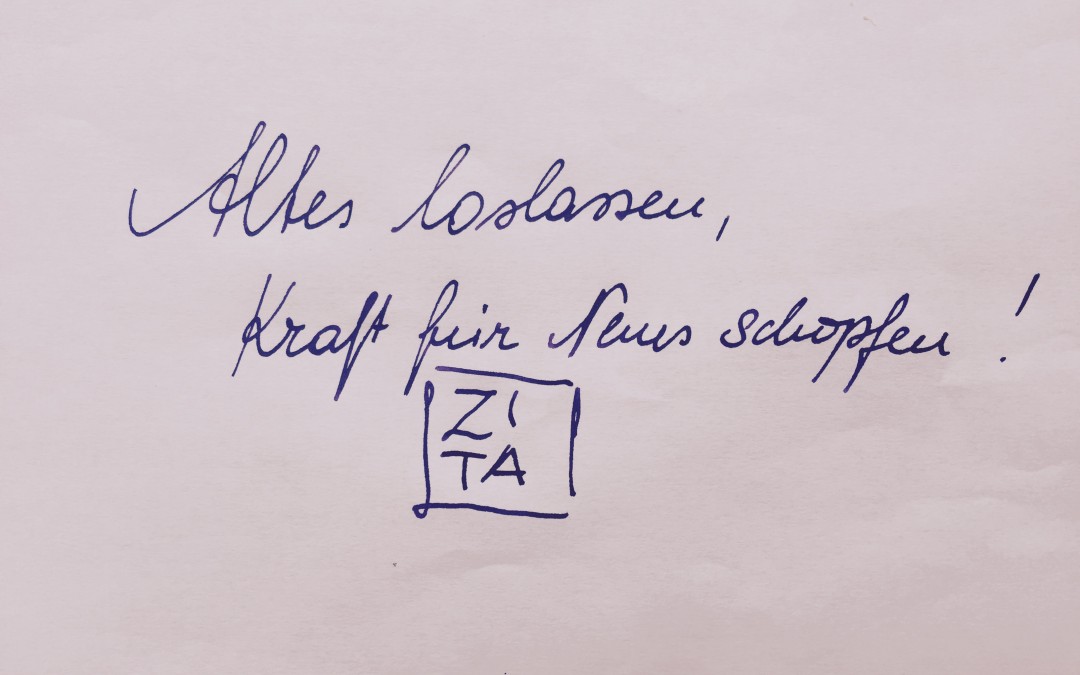 Altes loslassen,
Kraft für Neues schöpfen!
ZI
TA